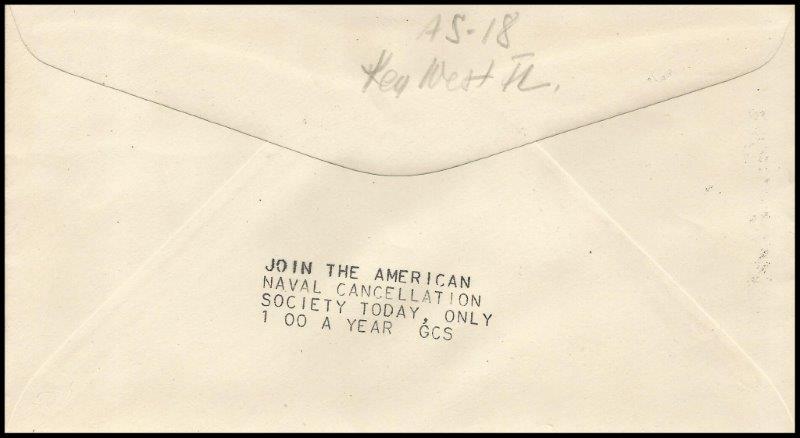 AS-18
Key West FL.
JOIN THE AMERICAN
NAVAL CANCELLATION
SOCIETY TODAY, ONLY
1 00 A YEAR GCS